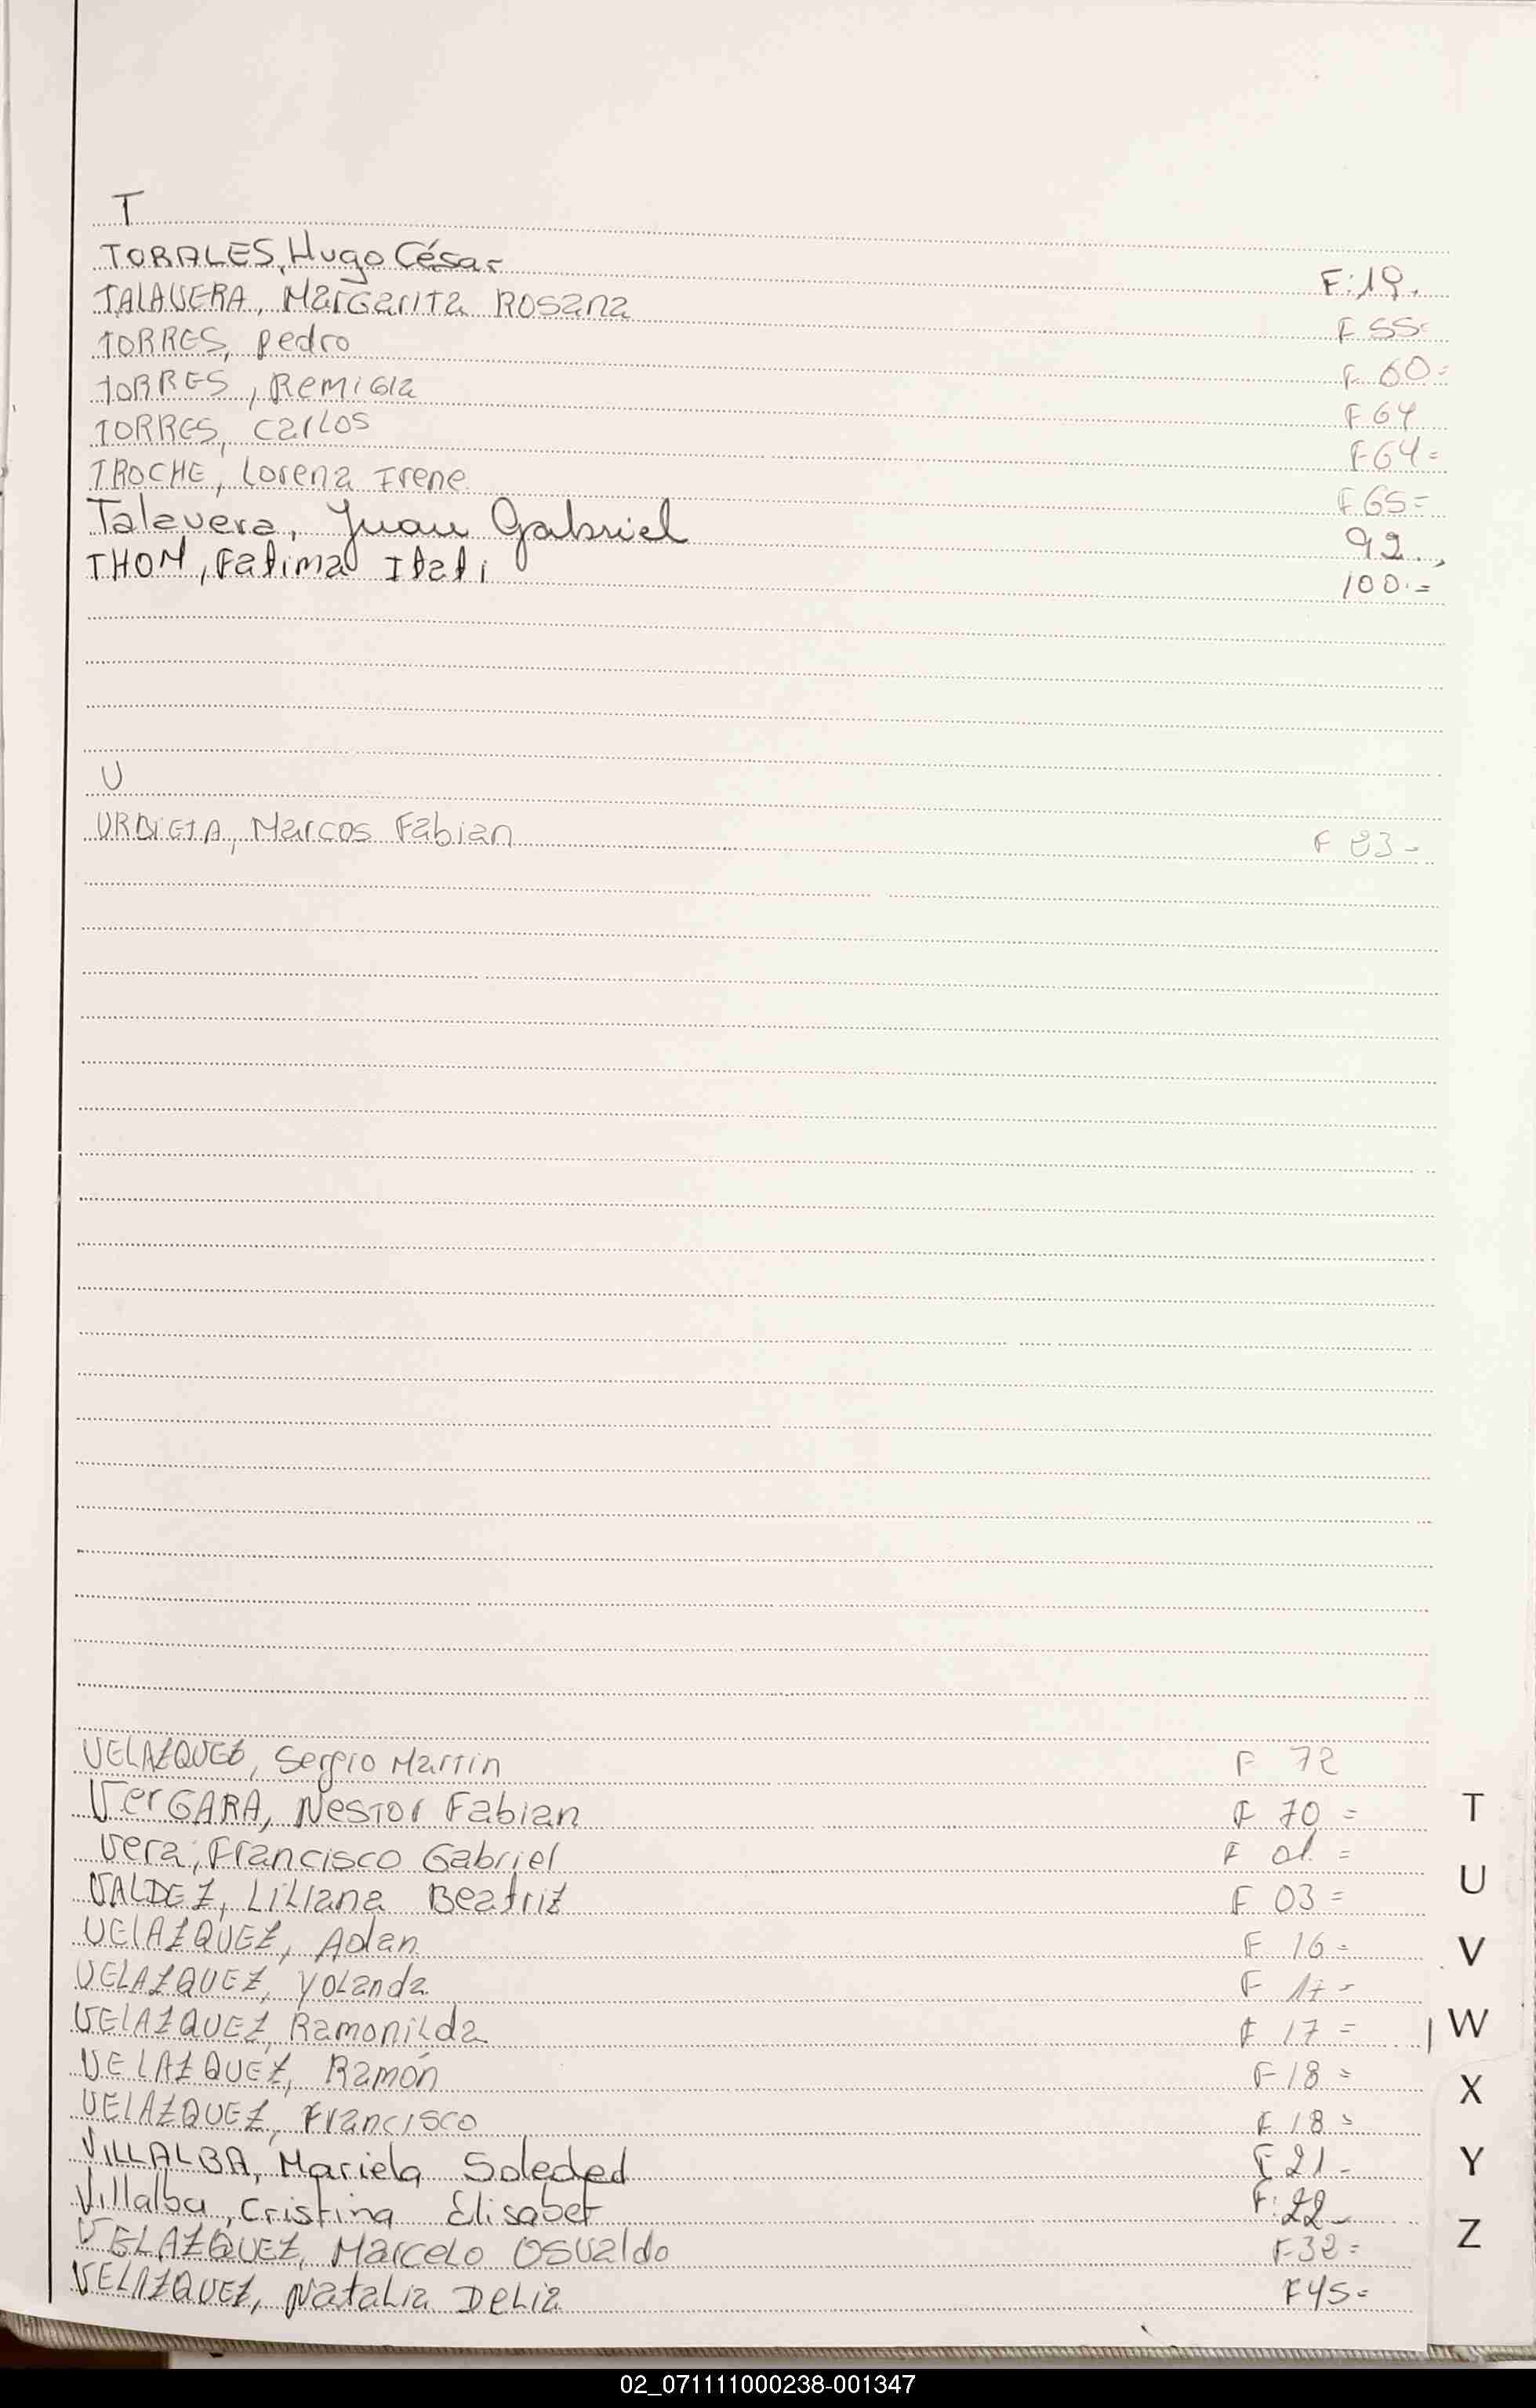 T
TORALES, Hugo César F: 19.
TALAVERA, Margarita Rosana F 55=
TORRES, Pedro F 60=
TORRES, Remigia F 64
TORRES, Carlos F 64=
TROCHE, Lorena Irene F 65=
Talavera, Juan Gabriel 92.,
THOM, Fatima Itati 100.=
U
URBIETA, Marcos Fabian F 83-
VELAZQUEZ, Sergio Martin F 72
VerGARA, Nestor Fabian F 70 =
Vera, Francisco Gabriel F 01. =
VALDEZ, Liliana Beatriz F 03 =
VELAZQUEZ, Adlan F 16=
VELAZQUEZ, Yolanda F 17 -
VELAZQUEZ, Ramonilda F 17 =
VELAZQUEZ, Ramón F 18 =
VELAZQUEZ, Francisco F 18 =
VILLALBA, Mariela Soleded F 21-
Villalba, Cristina Elisabet F: 22-
VELAZQUEZ, Marcelo Osvaldo F 32=
VELAZQUEZ, Natalia Delia F 45=
T
U
V
W
X
Y
Z
02_071111000238-001347